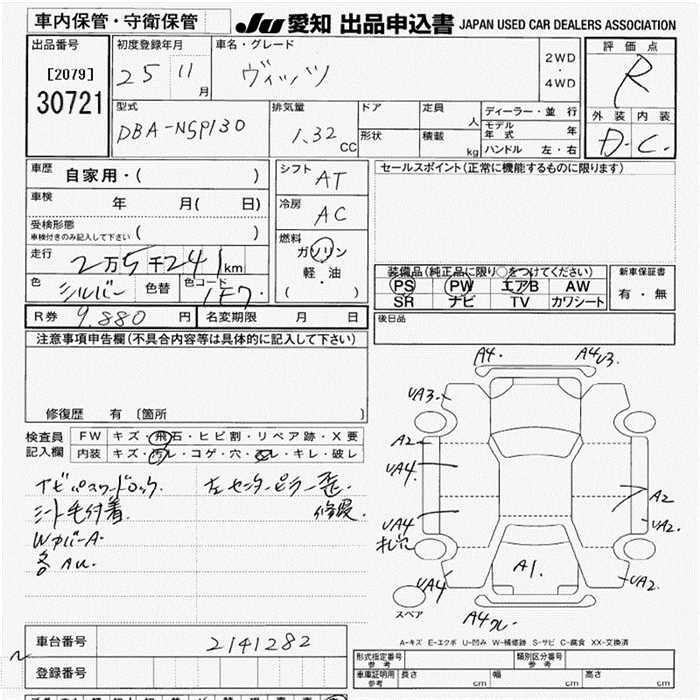 車内保管・守衛保管
JU 愛知 出品申込書 JAPAN USED CAR DEALERS ASSOCIATION
出品番号
[2079]
30721
初度登録年月
25 11 月
車名・グレード
ヴィッツ
2WD
・
4WD
評価点
R
外装 内装
D. C.
型式
DBA-NSP130
排気量
1.32 CC
ドア
形状
定員 人
積載 kg
ディーラー・並行
モデル年式 年
ハンドル 左・右
車歴 自家用・( )
車検 年 月( 日)
受検形態
車検付きのみ記入して下さい ( )
走行 2万5千241km
色 シルバー 色替 色コード 1F7
シフト AT
冷房 AC
燃料
ガソリン
軽・油
( )
セールスポイント(正常に機能するものに限ります)
装備品(純正品に限り○をつけてください)
PS PW エアB AW
SR ナビ TV カワシート
新車保証書
有・無
R券 9.880 円 名変期限 月 日
後日品
注意事項申告欄(不具合内容等は具体的に記入して下さい)
修復歴 有〔箇所 〕
検査員
記入欄
FW キズ・飛石・ヒビ割・リペア跡・X要
内装 キズ・汚レ・コゲ・穴・スレ・キレ・破レ
ナビパスワードロック. 左センターピラー歪
シート毛付着 修復
Wカバー A.
各AU.
A4. A4 U3.
UA3.
A2
UA4
UA4
UA4
A2
UA2.
UA2.
A1.
A4
スペア
A-キズ E-エクボ U-凹み W-補修跡 S-サビ C-腐食 XX-交換済
車台番号 2141282
登録番号
形式指定番号
参考
類別区分番号
参考
車庫証明用
参考
長さ cm 幅 cm 高さ cm